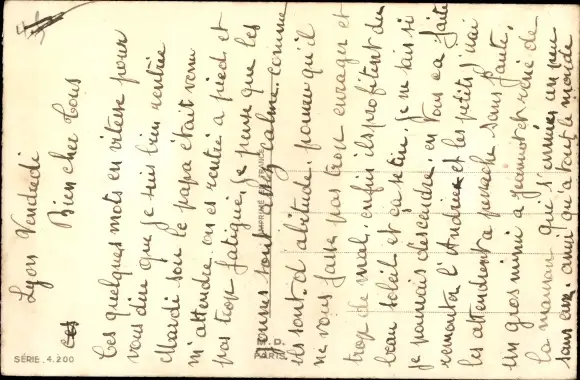 Lyon Vendredi
Bien cher tous
Ces quelques mots en vitesse pour
vous dire que je suis bien rentrée
Mardi soir le papa était venu
m'attendre on es rentré a pied et
pas trop fatigué, je pense que les
gonnes sont assez calme comme
ils sont d'abitude, pourvu qu'il
ne vous fasse pas trop enrager et
trop de mal, enfin ils profiteront du
beau soleil et ça se tire, je ne sais si
je pourrais descendre, en vous ça faite
remonter l'Andrée et les petits j'irai
les attendre a perrache sans faute,
un gros mimi a Jeannot et renée de
la maman qui s'ennuies un peu
sans eux, ainsi qu'a tout le monde
SÉRIE. 4.200
IMPRIMÉ EN FRANCE
P. D.
PARIS